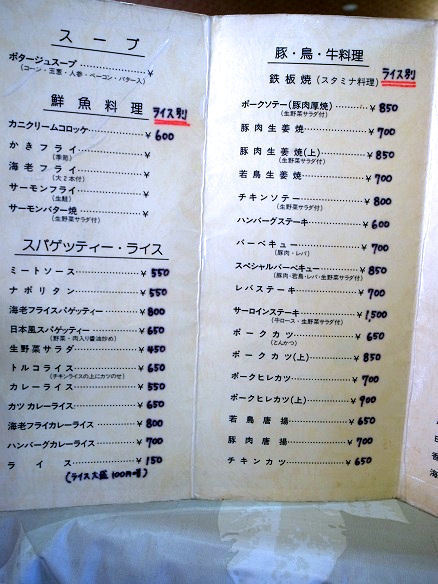 スープ
ポタージュスープ ¥
(コーン・玉葱・人参・ベーコン・バター入)
鮮魚料理 ライス別
カニクリームコロッケ ¥600
かきフライ ¥
(季節)
海老フライ ¥
(大2本付)
サーモンフライ ¥
(生鮭)
サーモンバター焼 ¥
(生野菜サラダ付)
スパゲッティー・ライス
ミートソース ¥550
ナポリタン ¥550
海老フライスパゲッティー ¥800
日本風スパゲッティー ¥650
(野菜・肉入り醤油炒め)
生野菜サラダ ¥450
トルコライス ¥650
(チキンライスの上にカツのせ)
カレーライス ¥550
カツカレーライス ¥650
海老フライカレーライス ¥800
ハンバーグカレーライス ¥700
ライス ¥150
(ライス大盛 100円増)
豚・鳥・牛料理
鉄板焼(スタミナ料理) ライス別
ポークソテー(豚肉厚焼) ¥850
(生野菜サラダ付)
豚肉生姜焼 ¥700
豚肉生姜焼(上) ¥850
(生野菜サラダ付)
若鳥生姜焼 ¥700
チキンソテー ¥800
(生野菜サラダ付)
ハンバーグステーキ ¥600
バーベキュー ¥700
(豚肉・レバ)
スペシャルバーベキュー ¥850
(豚肉・若鳥・レバ・生野菜サラダ付)
レバステーキ ¥700
サーロインステーキ ¥1,500
(牛ロース・生野菜サラダ付)
ポークカツ ¥650
(とんかつ)
ポークカツ(上) ¥850
ポークヒレカツ ¥700
ポークヒレカツ(上) ¥900
若鳥唐揚 ¥650
豚肉唐揚 ¥700
チキンカツ ¥650